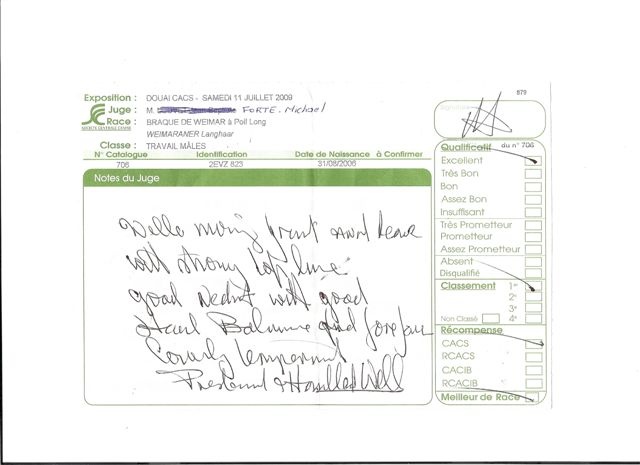 879
Exposition : DOUAI CACS - SAMEDI 11 JUILLET 2009
Juge : M. FORTE. Michael
Race : BRAQUE DE WEIMAR à Poil Long
SOCIETE CENTRALE CANINE
WEIMARANER Langhaar
Classe : TRAVAIL MÂLES
N° Catalogue Identification Date de Naissance à Confirmer
706 2EVZ 823 31/08/2006
Notes du Juge
front and
with strong top line
good with good
and
temperament
Presented & Handled Well
Signature
Qualificatif du n° 706
Excellent
Très Bon
Bon
Assez Bon
Insuffisant
Très Prometteur
Prometteur
Assez Prometteur
Absent
Disqualifié
Classement 1er
2e
3e
Non Classé 4e
Récompense
CACS
RCACS
CACIB
RCACIB
Meilleur de Race